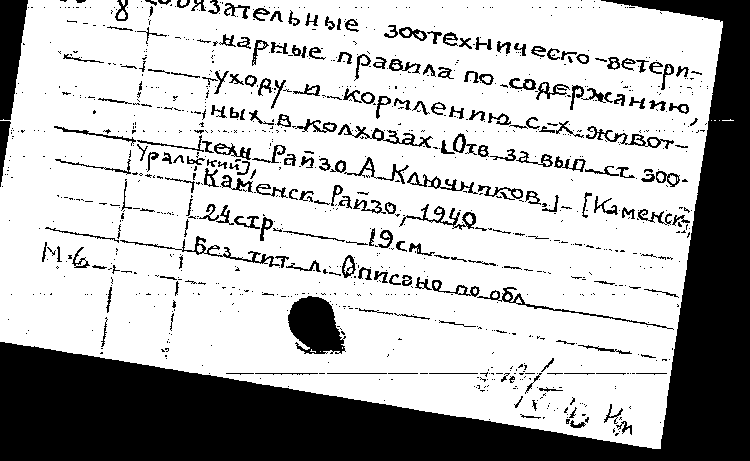 8 Обязательные зоотехническо-ветери-
нарные правила по содержанию,
уходу и кормлению с.-х. живот-
ных в колхозах. [Отв. за вып. ст. зоо-
техн. Райзо А. Ключников.] - [Каменск-
Уральский],
Каменск. Райзо, 1940
24 стр. 19 см.
Без тит. л. Описано по обл.
М-6